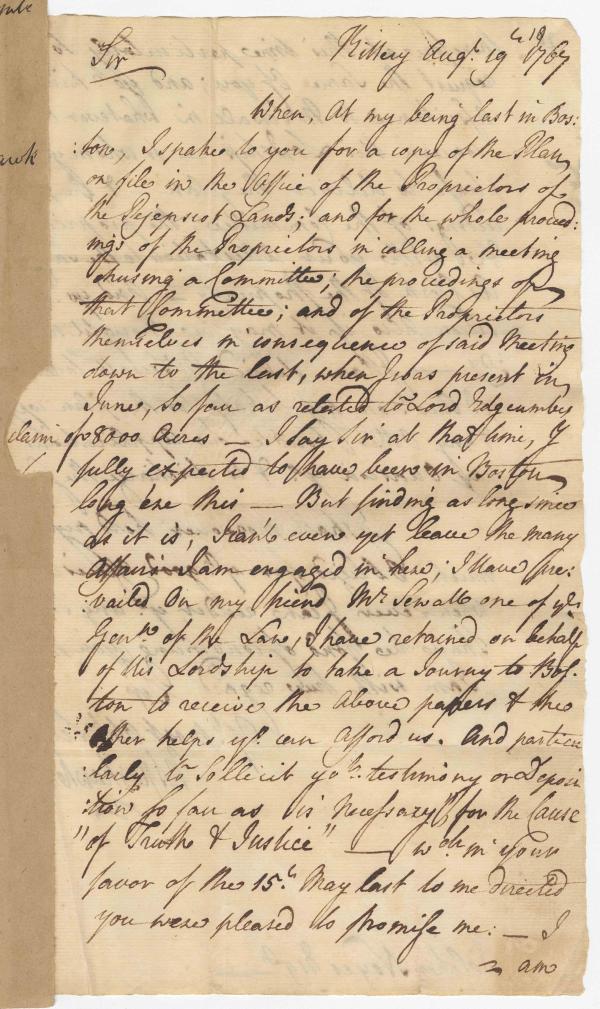 Kittery Augt. 19th 1767
Sir
When, At my being last in Bos:
:ton, I spake to you for a copy of the Plan
on file in the Office of the Proprietors of
the Pejepscot Lands; and for the whole proceed:
:ings of the Proprietors in calling a meeting
Chusing a Committee; the proceedings of
that Committee; and of the Proprietors
themselves in consequence of said Meeting
down to the last, when I was present in
June, So far as related to Lord Edgcumbes
claim of 8000 Acres — I say Sir at that time, I
fully expected to have been in Boston
long ere this — But finding as long since
as it is, I can't even yet leave the many
Affairs I am engaged in here; I have pre:
:vailed on my friend Mr. Sewall one of ye
Gentn. of the Law, I have retained on behalf
of his Lordship to take a Journy to Bos:
:ton to receive the above papers & the
other helps yt. can afford us. And particu
:larly to Sollicit yor. testimony or Deposi
:tion so far as is Necessary "for the Cause
"of Truth & Justice" — wch. in your
favor of the 15th. May last to me directed
you were pleased to promise me: — I
am